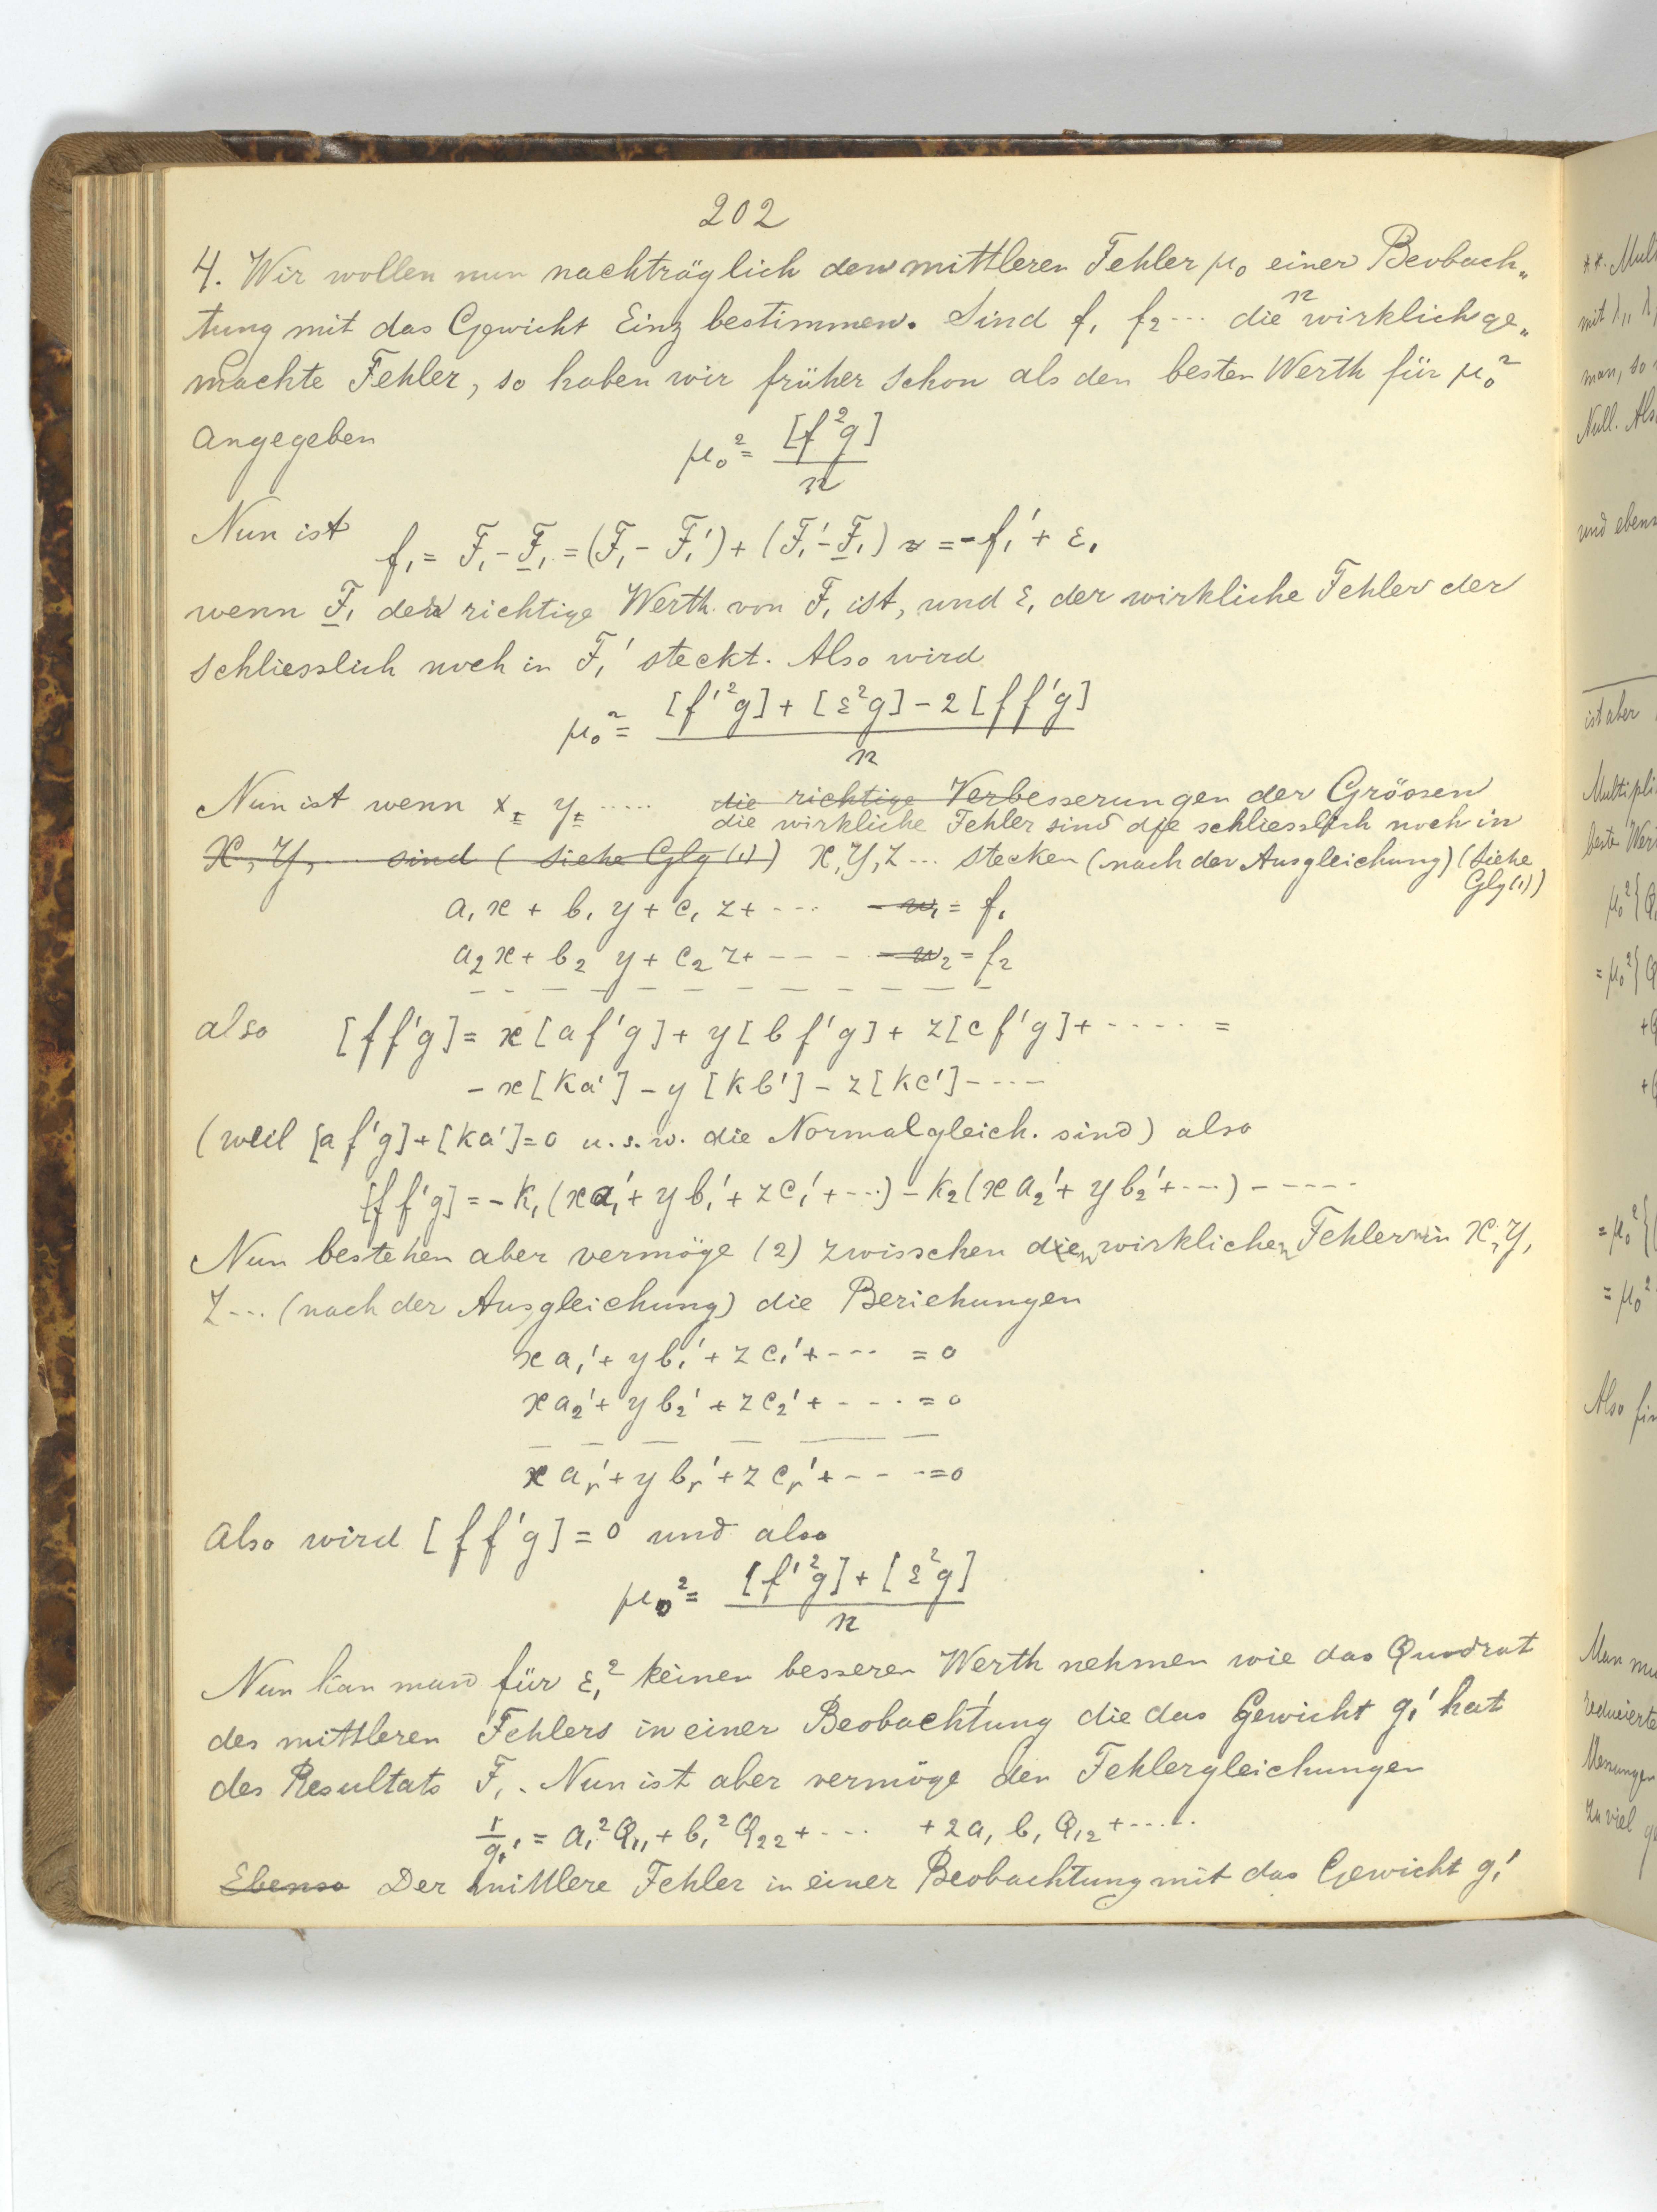 202
4. Wir wollen nun nachträglich den mittleren Fehler μ₀ einer Beobach„
tung mit das Gewicht Einz bestimmen. Sind f₁ f₂ ... die n wirklich ge„
machte Fehler, so haben wir früher schon als den besten Werth für μ₀²
angegeben μ₀² = [f²g] / n
Nun ist f₁ = F₁ - F̲₁ = (F₁ - F₁') + (F₁' - F̲₁) = -f₁' + ε₁
wenn F̲₁ der richtige Werth von F₁ ist, und ε₁ der wirkliche Fehler der
schliesslich noch in F₁' steckt. Also wird
μ₀² = ([f'²g] + [ε²g] - 2[ff'g]) / n
Nun ist wenn x y ..... die richtige Verbesserungen der Grössen
die wirkliche Fehler sind die schliesslich noch in
X, Y, ... sind (siehe Glg (1)) X, Y, Z ... stecken (nach der Ausgleichung) (siehe
Glg (1))
a₁x + b₁y + c₁z + ... - w₁ = f₁
a₂x + b₂y + c₂z + --- - w₂ = f₂
— — — — — — — — — — —
also [ff'g] = x[af'g] + y[bf'g] + z[cf'g] + ..... =
- x[ka'] - y[kb'] - z[kc'] - ....
(weil [af'g] + [ka'] = 0 u.s.w. die Normalgleich. sind) also
[ff'g] = -k₁(xa₁' + yb₁' + zc₁' + ...) - k₂(xa₂' + yb₂' + ...) - .....
Nun bestehen aber vermöge (2) zwisschen den wirklichen Fehlern in X, Y,
Z ... (nach der Ausgleichung) die Beziehungen
xa₁' + yb₁' + zc₁' + .... = 0
xa₂' + yb₂' + zc₂' + .... = 0
— — — — — —
xaᵣ' + ybᵣ' + zcᵣ' + .... = 0
Also wird [ff'g] = 0 und also
μ₀² = ([f'²g] + [ε²g]) / n
Nun kan man für ε₁² keinen besseren Werth nehmen wie das Quadrat
des mittleren Fehlers in einer Beobachtung die das Gewicht g₁' hat
des Resultats F₁. Nun ist aber vermöge den Fehlergleichungen
1/g₁' = a₁²Q₁₁ + b₁²Q₂₂ + .... + 2a₁b₁Q₁₂ + .....
Ebenso Der mittlere Fehler in einer Beobachtung mit das Gewicht g₁'
mit λ₁, λ
man, so
Null.
ist aber
= μ₀²